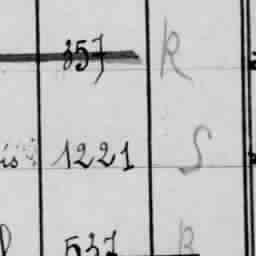 357 R
is 1221 S
537 B